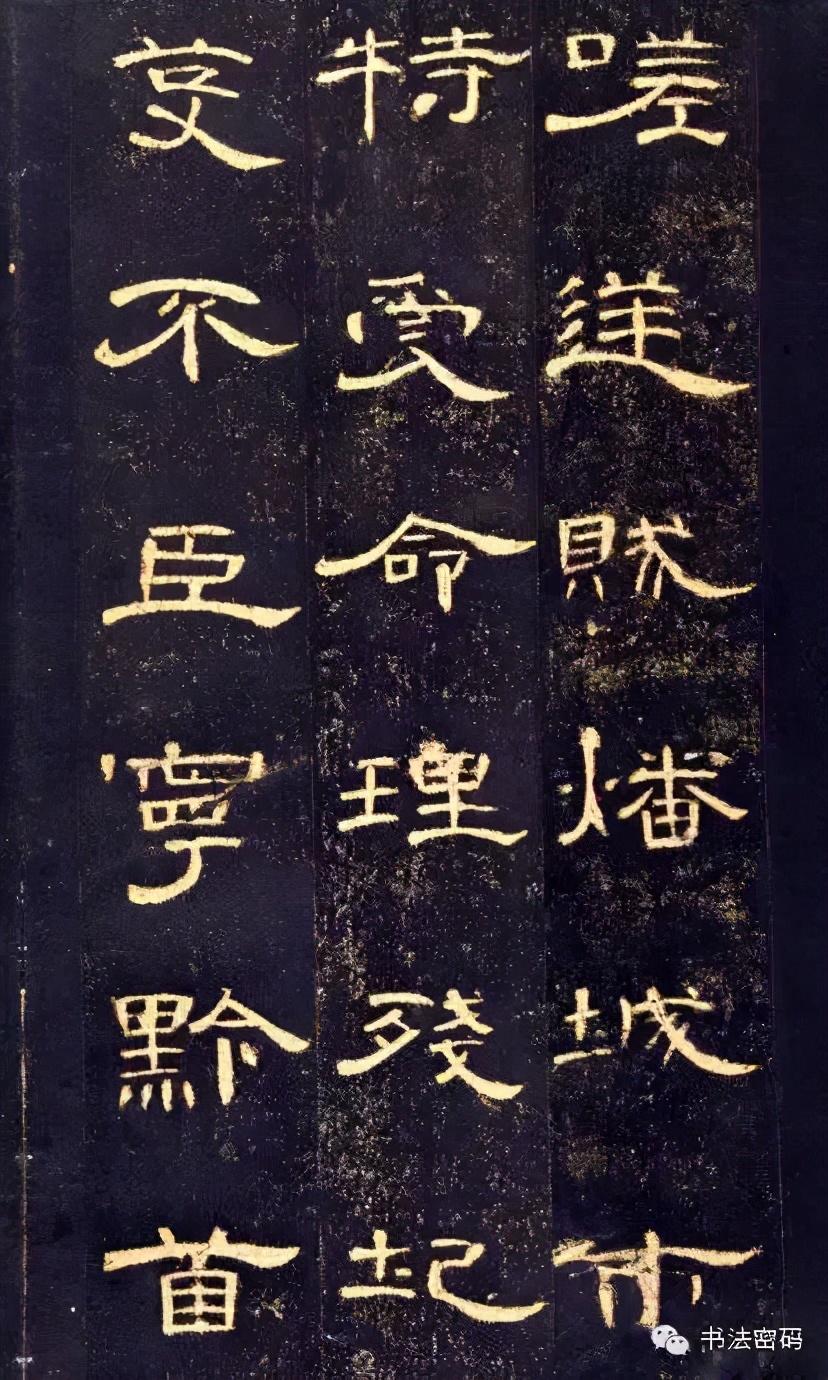 嗟逆賊燔城市
特受命理殘圮
芟不臣寧黔首
书法密码